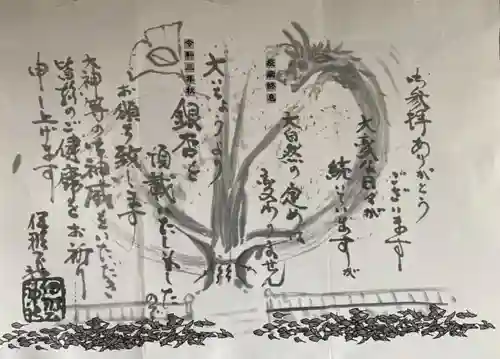 御参拝ありがとう
ございます
大変な日々が
続いていますが
疫病終息
大自然の定めは
変わりません
令和三年秋
大いちょうより
銀杏を
頂戴いたしましたので
お願い致します
大神等の御神威をいただき
皆様のご健康をお祈り
申し上げます